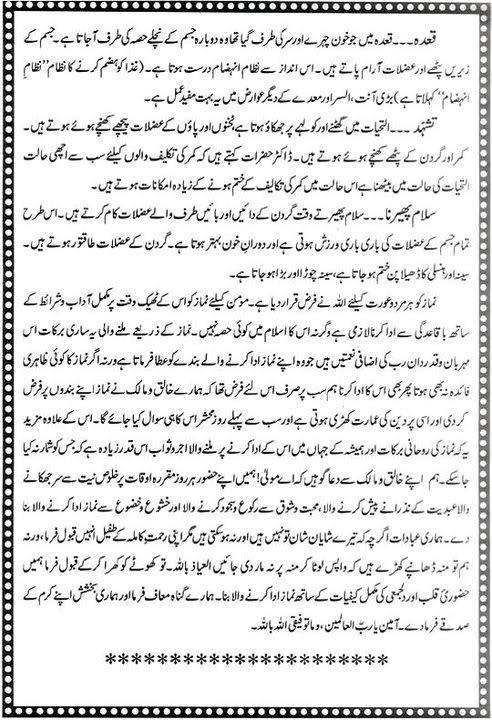 قعدہ ۔۔۔ قعدہ میں جو خون چہرے اور سر کی طرف گیا تھا وہ دوبارہ جسم کے نچلے حصہ کی طرف آجاتا ہے ۔ جسم کے
زیریں پٹھے اور عضلات آرام پاتے ہیں ۔ اس انداز سے نظام انہضام درست ہوتا ہے ۔ (غذا کو ہضم کرنے کا نظام ”نظامِ
انہضام“ کہلاتا ہے) بڑی آنت ، السر اور معدے کے دیگر عوارض میں یہ بہت مفید عمل ہے ۔
تشہّد ۔۔۔ التحیات میں گھٹنے اور کولہے پر جھکاؤ ہوتا ہے ، ٹخنوں اور پاؤں کے عضلات پیچھے کھنچے ہوئے ہوتے ہیں ۔
کمر اور گردن کے پٹھے کھنچے ہوئے ہوتے ہیں ۔ ڈاکٹر حضرات کہتے ہیں کہ کمر کی تکالیف والوں کیلئے سب سے اچھی حالت
التحیات کی حالت میں بیٹھنا ہے اس حالت میں کمر کی تکالیف کے ختم ہونے کے زیادہ امکانات ہوتے ہیں ۔
سلام پھیرنا ۔۔۔ سلام پھیرتے وقت گردن کے دائیں اور بائیں طرف والے عضلات کام کرتے ہیں ۔ اس طرح
تمام جسم کے عضلات کی باری باری ورزش ہوتی ہے اور دورانِ خون بہتر ہوتا ہے ۔ گردن کے عضلات طاقتور ہوتے ہیں ۔
سینہ اور ہنسلی کا ڈھیلا پن ختم ہو جاتا ہے ، سینہ چوڑا اور بڑا ہو جاتا ہے ۔
نماز کو ہر مرد و عورت کیلئے اللہ نے فرض قرار دیا ہے ۔ مؤمن کیلئے نماز کو اس کے ٹھیک وقت پر مکمل آداب و شرائط کے
ساتھ باقاعدگی سے ادا کرنا لازمی ہے وگرنہ اس کا اسلام میں کوئی حصہ نہیں ۔ نماز کے ذریعے ملنے والی یہ ساری برکات اس
مہربان وقدردان رب کی اضافی نعمتیں ہیں جو وہ اپنے نماز ادا کرنے والے بندے کو عطا فرماتا ہے ورنہ اگر نماز کا کوئی ظاہری
فائدہ نہ بھی ہوتا پھر بھی اس کا ادا کرنا ہم سب پر صرف اس لئے فرض تھا کہ ہمارے خالق و مالک نے اسے اپنے بندوں پر فرض
کر دی اور اسی پر دین کی عمارت کھڑی ہوتی ہے اور سب سے پہلے روزِ محشر اس کا ہی سوال کیا جائے گا ۔ اس کے علاوہ مزید
یہ کہ نماز کی روحانی برکات اور ہمیشہ کے جہاں میں اس کے ادا کرنے پر ملنے والا اجر و ثواب اس قدر زیادہ ہے کہ جس کو شمار نہ کیا
جا سکے ۔ ہم اپنے خالق و مالک سے دعا گو ہیں کہ اے مولیٰ ! ہمیں اپنے حضور ہر روز مقررہ اوقات پر خلوصِ نیت سے سر جھکانے
والا ، عبدیت کے نذرانے پیش کرنے والا ، محبت و شوق سے رکوع و سجود کرنے والا اور خشوع و خضوع سے نماز ادا کرنے والا بنا
دے ۔ ہماری عبادات اگرچہ کہ تیرے شایانِ شان تو نہیں ہیں اور نہ ہو سکتی ہیں مگر اپنی رحمتِ کاملہ کے طفیل انہیں قبول فرما ، ورنہ
ہم تو منہ ڈھانپے کھڑے ہیں کہ واپس لوٹا کر منہ پر نہ مار دی جائیں العیاذ باللہ ۔ تو کھوٹے کو کھرا کر کے قبول فرما ہمیں
حضوریٔ قلب اور دلجمعی کی مکمل کیفیات کے ساتھ نماز ادا کرنے والا بنا ۔ ہمارے گناہ معاف فرما اور ہماری بخشش اپنے کرم کے
صدقے فرما دے ۔ آمین یا ربّ العالمین ، وما توفیقی الا باللہ ۔
**********************